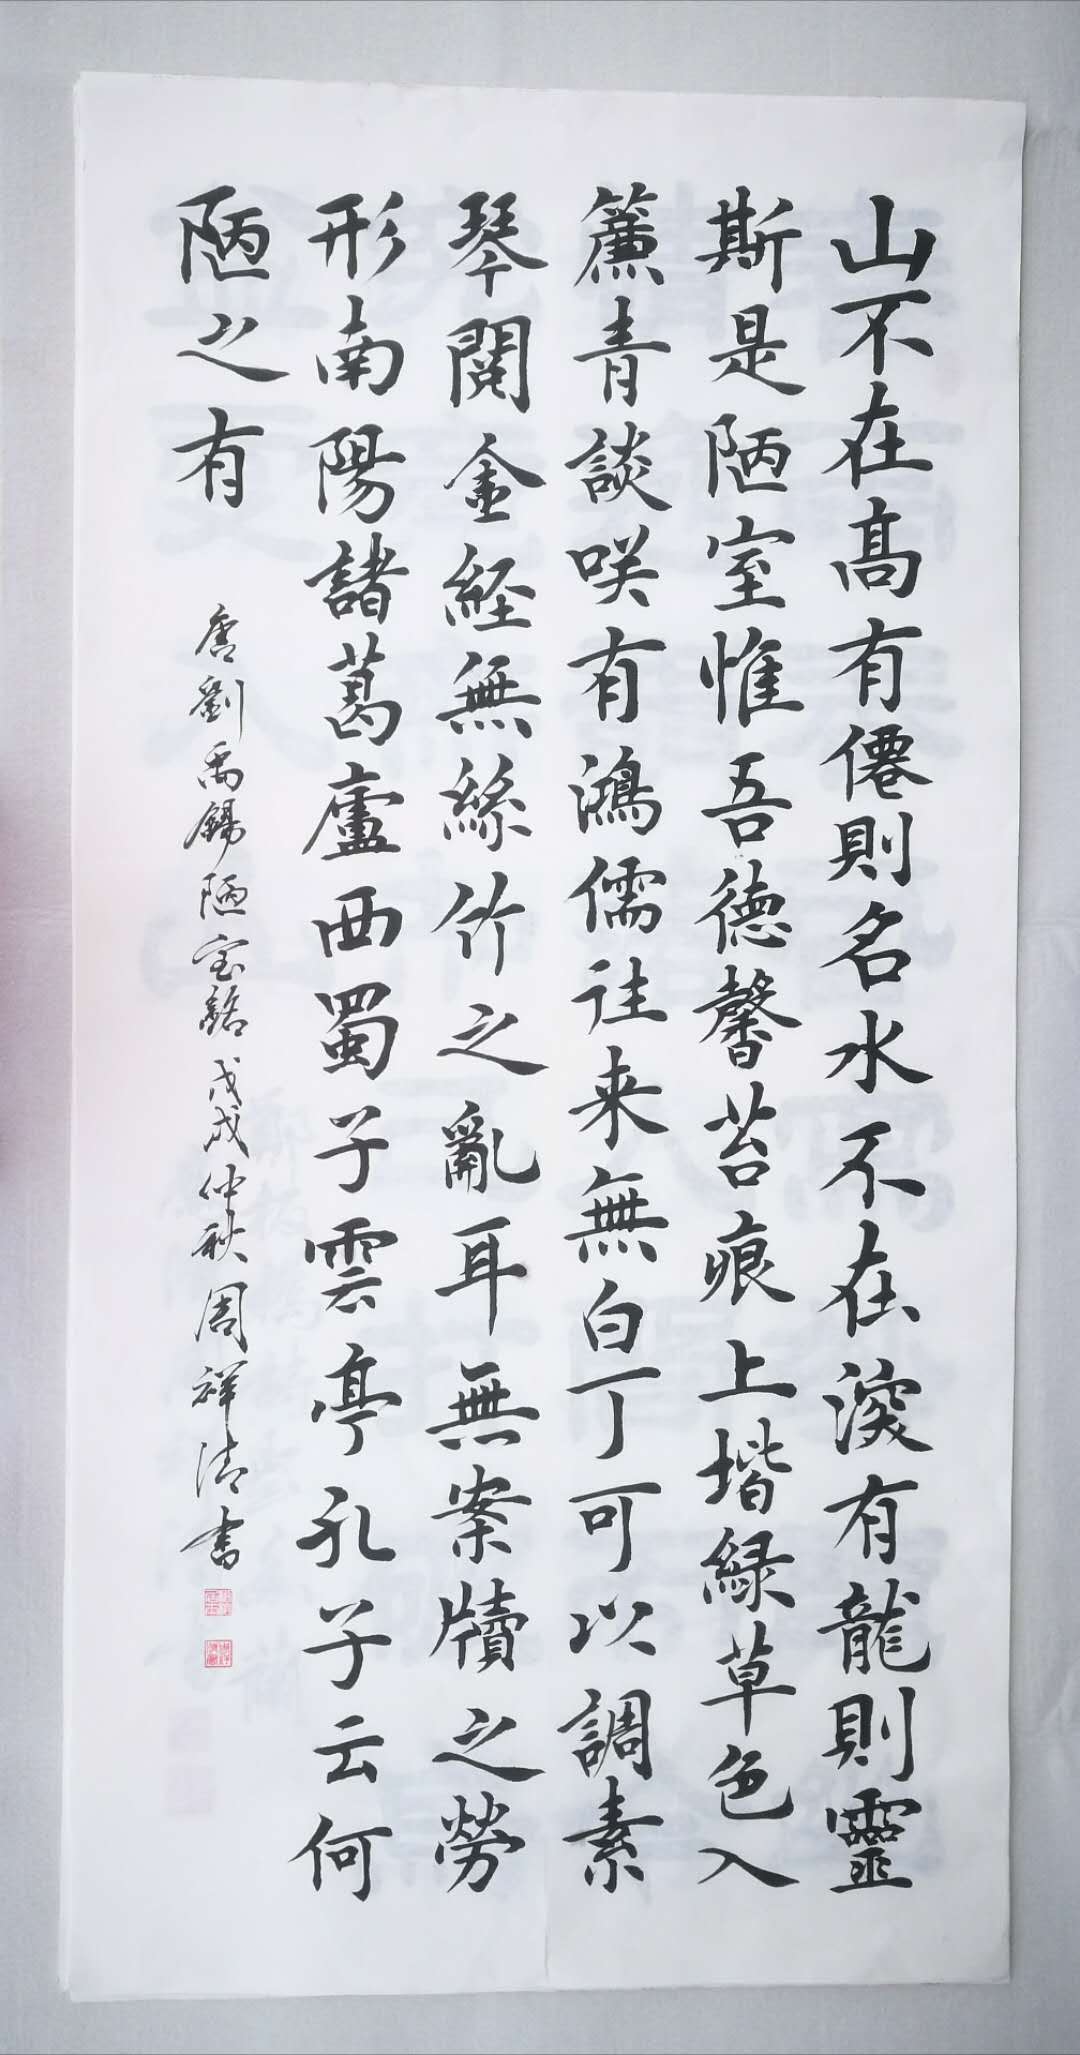 山不在高有僊則名水不在深有龍則靈
斯是陋室惟吾德馨苔痕上堦緑草色入
簾青談咲有鴻儒往来無白丁可以調素
琴閱金経無絲竹之亂耳無案牘之勞
形南陽諸葛廬西蜀子雲亭孔子云何
陋之有
唐劉禹錫陋室銘戊戌仲秋周祥清書